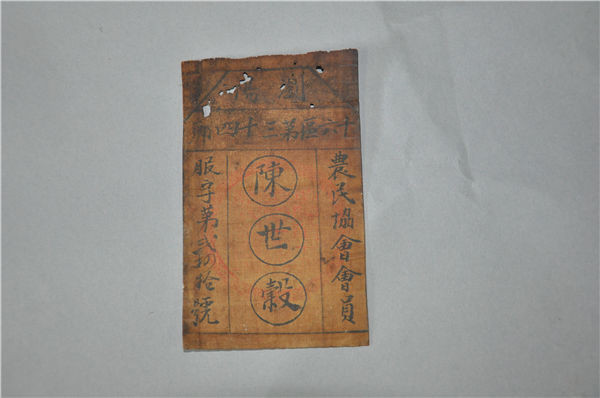 瀏陽
十六區第三十四鄉
農民協會會員
陳世穀
服字第弍拾號